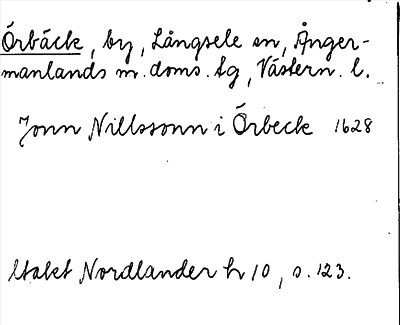 Örbäck, by, Långsele sn, Ånger-
manlands m. doms. tg, Västern. l.
Jonn Nillssonn i Örbeck 1628
Utakt Nordlander h 10, s. 123.